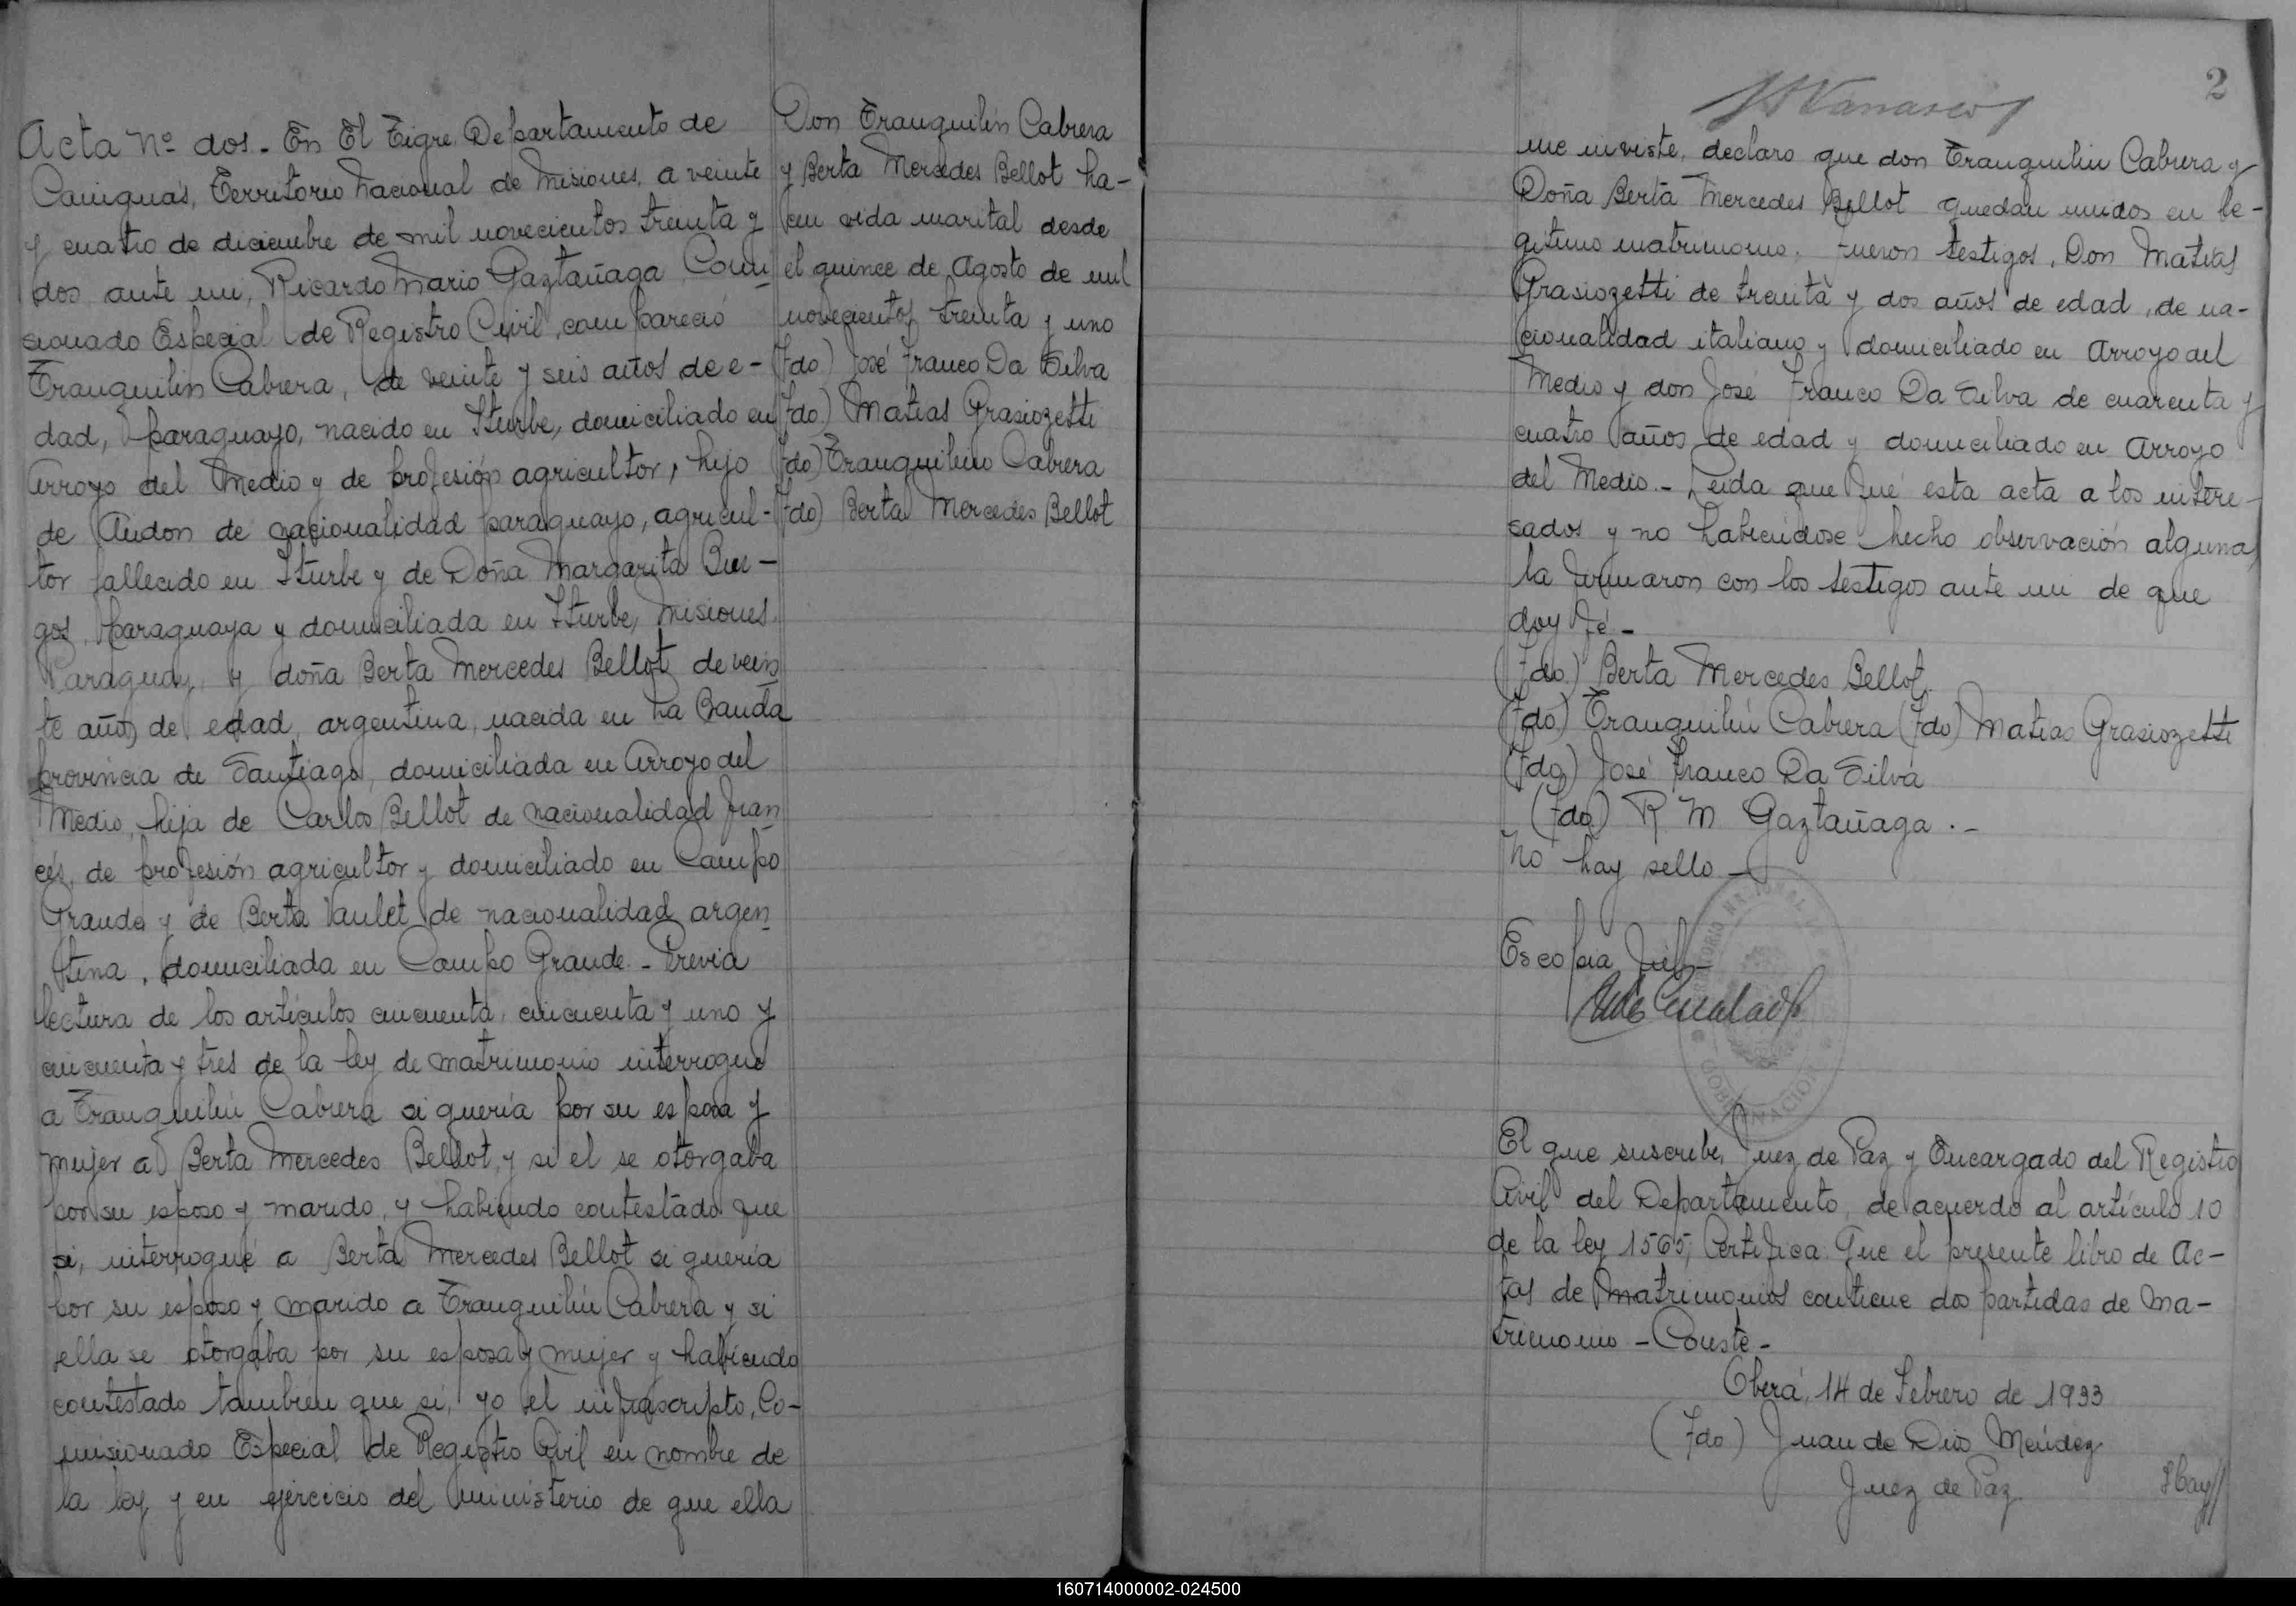 Acta Nº dos. En El Tigre Departamento de
Cainguás, Territorio Nacional de Misiones, a veinte
y cuatro de diciembre de mil novecientos treinta y
dos ante mi, Ricardo Mario Gaztañaga Comi
sionado Especial de Registro Civil, compareció
Tranquilin Cabrera, de veinte y seis años de e-
dad, paraguayo, nacido en Iturbe, domiciliado en
Arroyo del Medio y de profesión agricultor, hijo
de Audon de nacionalidad paraguayo, agricul-
tor fallecido en Iturbe y de Doña Margarita Bur-
gos, paraguaya y domiciliada en Iturbe, Misiones
Paraguay, y doña Berta Mercedes Bellot de vein
te años de edad, argentina, nacida en La Banda
provincia de Santiago, domiciliada en Arroyo del
Medio, hija de Carlos Bellot de nacionalidad fran
cés, de profesión agricultor y domiciliado en Campo
Grande y de Berta Vaulet de nacionalidad argen
tina, domiciliada en Campo Grande - Previa
lectura de los artículos cincuenta, cincuenta y uno y
cincuenta y tres de la ley de matrimonio interrogué
a Tranquilin Cabrera si quería por su esposa y
mujer a Berta Mercedes Bellot, y si el se otorgaba
por su esposo y marido, y habiendo contestado que
si, interrogué a Berta Mercedes Bellot si quería
por su esposo y marido a Tranquilin Cabrera y si
ella se otorgaba por su esposa y mujer y habiendo
contestado tambien que si, yo el infrascripto, Co-
misionado Especial de Registro Civil en nombre de
la ley y en ejercicio del ministerio de que ella
Don Tranquilin Cabrera
y Berta Mercedes Bellot ha-
cen vida marital desde
el quince de Agosto de mil
novecientos treinta y uno
(Fdo) José Franco Da Silva
(Fdo.) Matias Grasiozetti
(Fdo) Tranquilino Cabrera
(Fdo) Berta Mercedes Bellot
2
me inviste, declaro que don Tranquilin Cabrera y
Doña Berta Mercedes Bellot quedan unidos en le-
gitimo matrimonio. Fueron testigos, Don Matias
Grasiozetti de treinta y dos años de edad, de na-
cionalidad italiano y domiciliado en Arroyo del
Medio y don José Franco Da Silva de cuarenta y
cuatro años de edad y domiciliado en Arroyo
del Medio. - Leida que fué esta acta a los intere-
sados y no habiendose hecho observación alguna,
la firmaron con los testigos ante mi de que
doy fé -
(Fdo.) Berta Mercedes Bellot.
(Fdo) Tranquilin Cabrera (Fdo) Matias Grasiozetti
(Fdo) José Franco Da Silva
(Fdo) R M Gaztañaga . -
No hay sello -
Es copia fiel -
GOBERNACION
El que suscribe, Juez de Paz y Encargado del Registro
Civil del Departamento, de acuerdo al artículo 10
de la ley 1565, Certifica: Que el presente libro de Ac-
tas de Matrimonios contiene dos partidas de ma-
trimonio - Conste -
Oberá, 14 de Febrero de 1933
(Fdo) Juan de Dios Méndez
Juez de Paz
Hay//
160714000002-024500